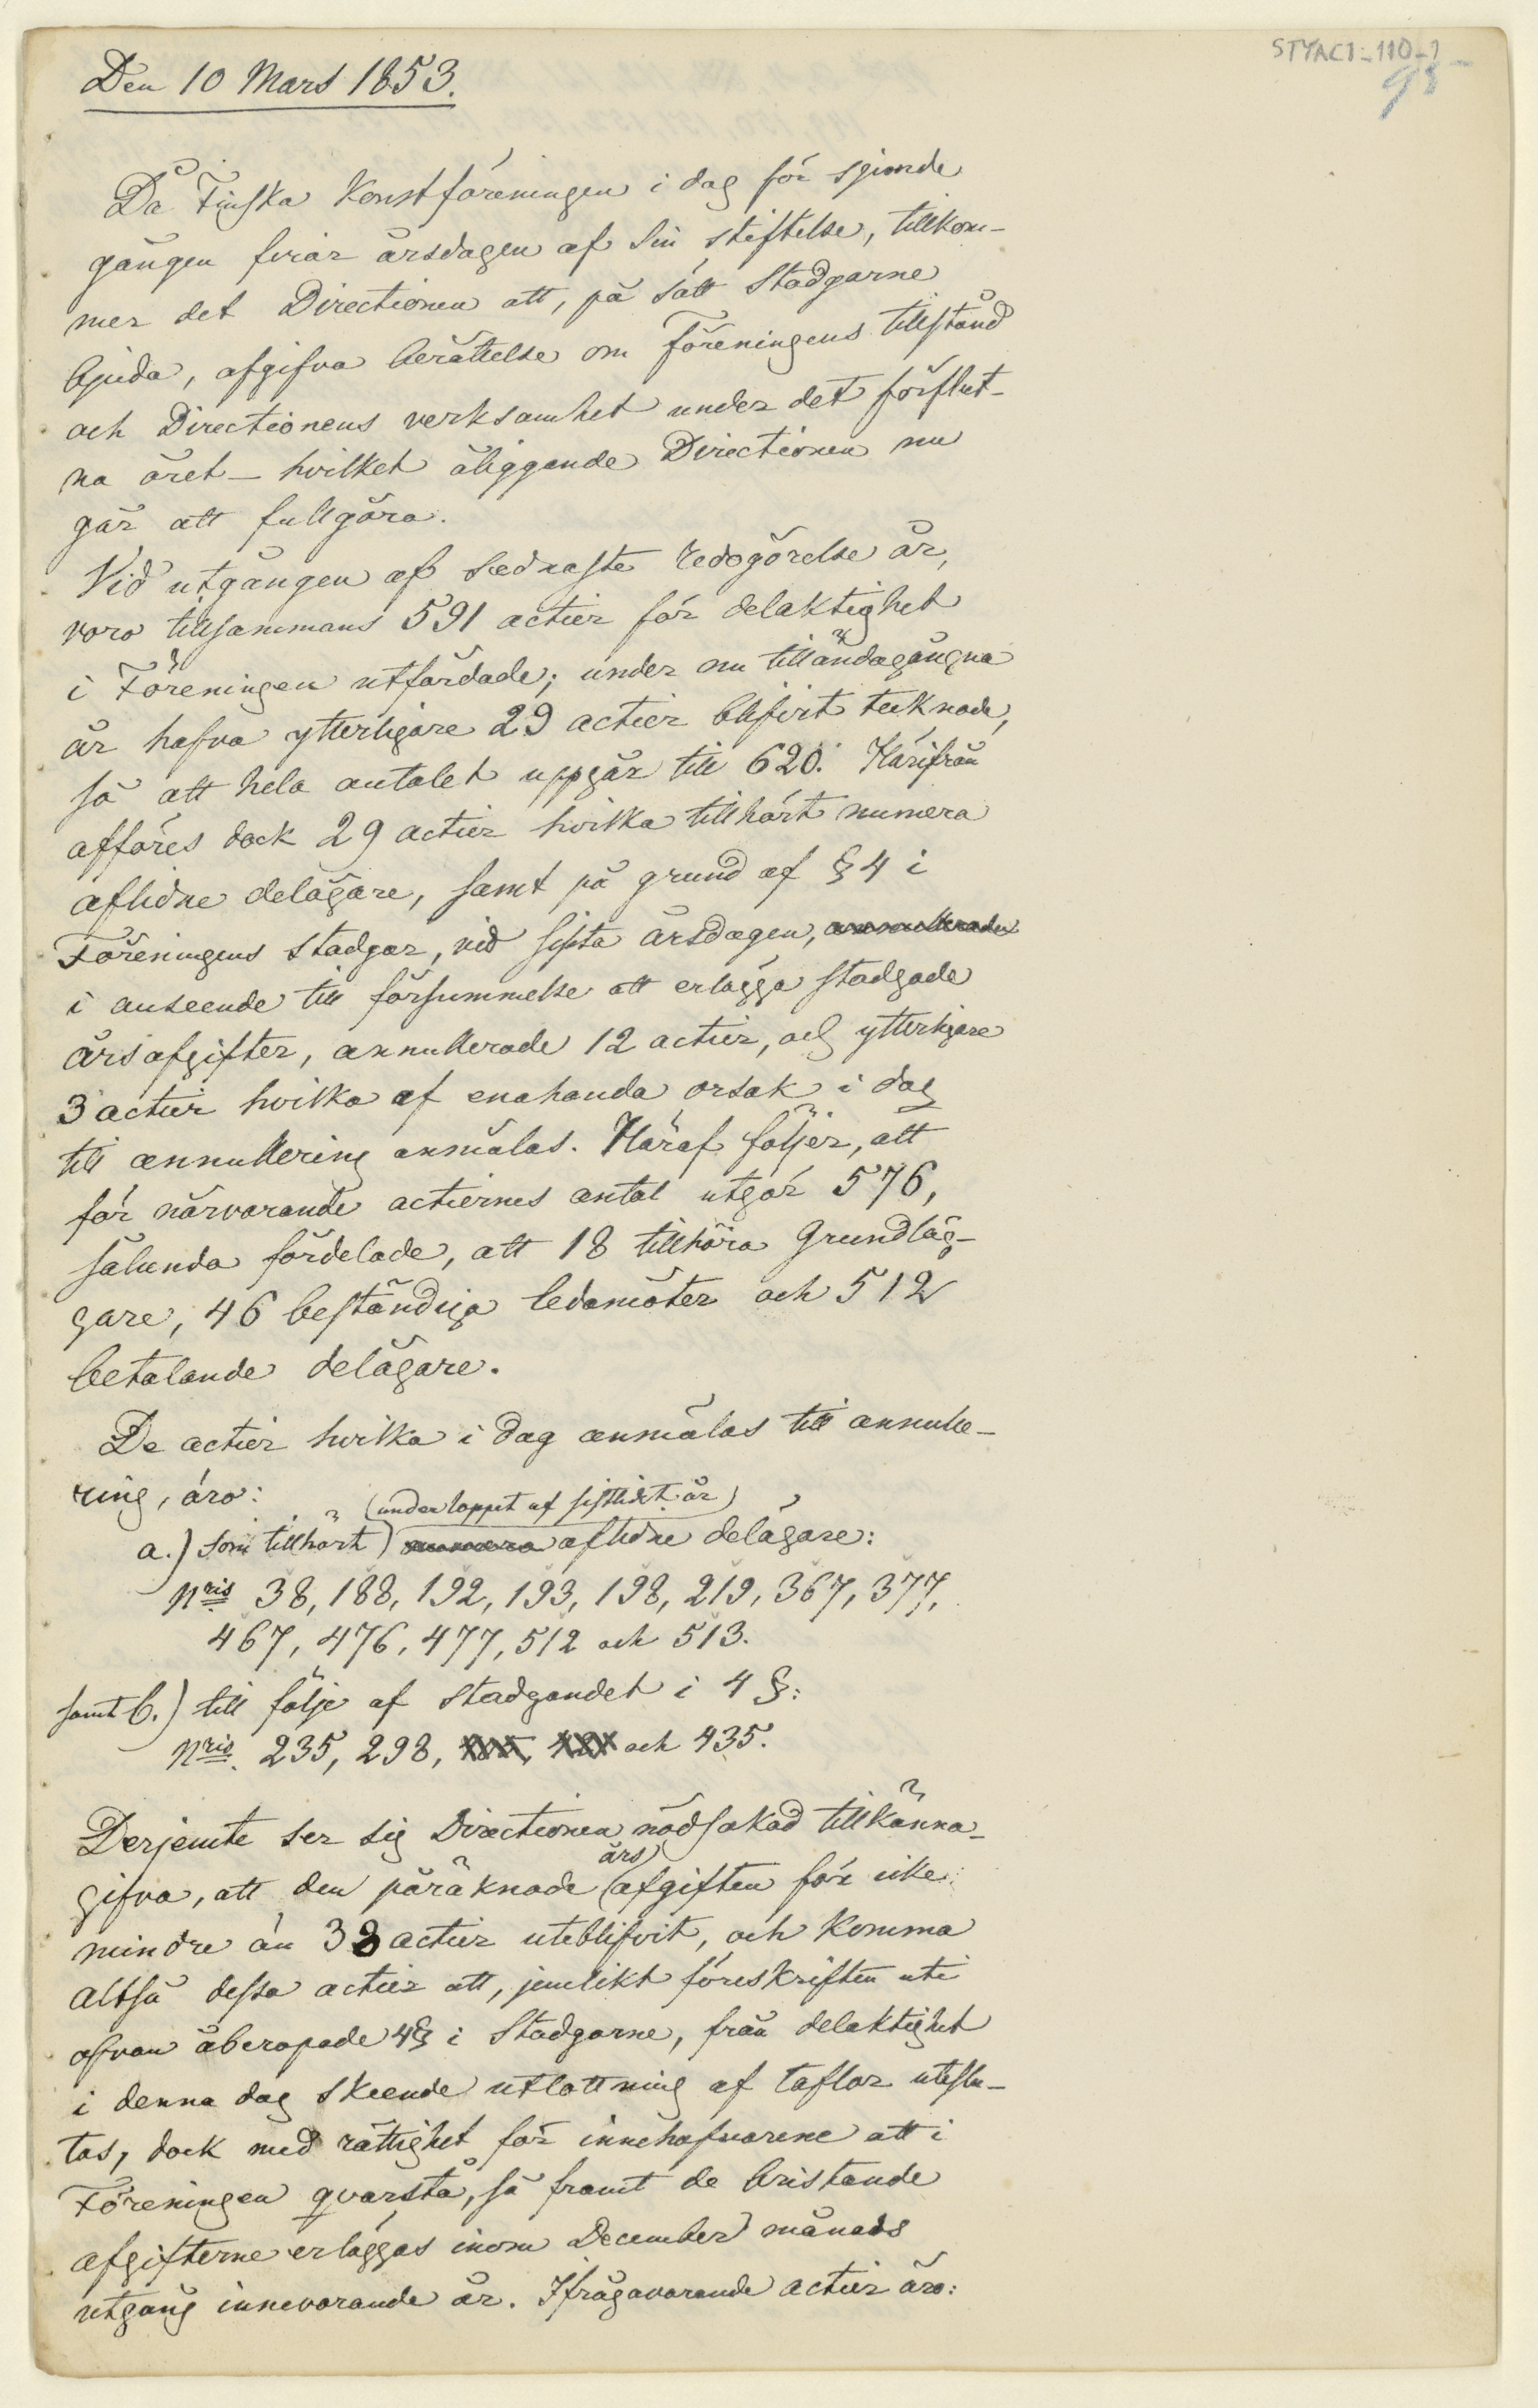 STYAC1-110-1
93
Den 10 Mars 1853.
Då Finska Konstföreningen i dag för sjunde
gången firar årsdagen af sin stiftelse, tillkom-
mer det Directionen att, på sätt Stadgarne
bjuda, afgifva berättelse om Föreningens tillstånd
och Directionens verksamhet under det förflut-
na året – hvilket åliggande Directionen nu
går att fullgöra.
Vid utgången af sednaste redogörelse år,
voro tillsammans 591 actier för delaktighet
i Föreningen utfärdade; under nu tilländagångna
år hafva ytterligare 29 actier blifvit tecknade,
så att hela antalet uppgår till 620. Härifrån
afföres dock 29 actier hvilka tillhört numera
aflidne delägare, samt på grund af § 4 i
Föreningens Stadgar, vid sista årsdagen, annullerade
i anseende till försummelse att erlägga stadgade
årsafgifter, annullerade 12 actier, och ytterligare
3 actier hvilka af enahanda orsak i dag
till annullering anmälas. Häraf följer, att
för närvarande actiernes antal utgör 576,
sålunda fördelade, att 18 tillhöra Grundläg-
gare, 46 beständiga ledamöter och 512
betalande delägare.
De actier hvilka i dag anmälas till annulle-
ring, äro:
(under loppet af sistlidet år)
a.) som tillhört numera aflidne delägare:
Nris 38, 188, 192, 193, 198, 219, 367, 377,
467, 476, 477, 512 och 513.
samt b.) till följe af Stadgandet i 4 §:
Nris. 235, 298, och 435.
Derjemte ser sig Directionen nödsakad tillkänna-
gifva, att den påräknade (års)afgiften för icke
mindre än 38 actier uteblifvit, och komma
altså dessa actier att, jemlikt föreskriften uti
ofvan åberopade 4§ i Stadgarne, från delaktighet
i denna dag skeende utlottning af taflor uteslu-
tas, dock med rättighet för innehafvarene att i
Föreningen qvarstå, så framt de bristande
afgifterne erläggas inom December månads
utgång innevarande år. Ifrågavarande actier äro: